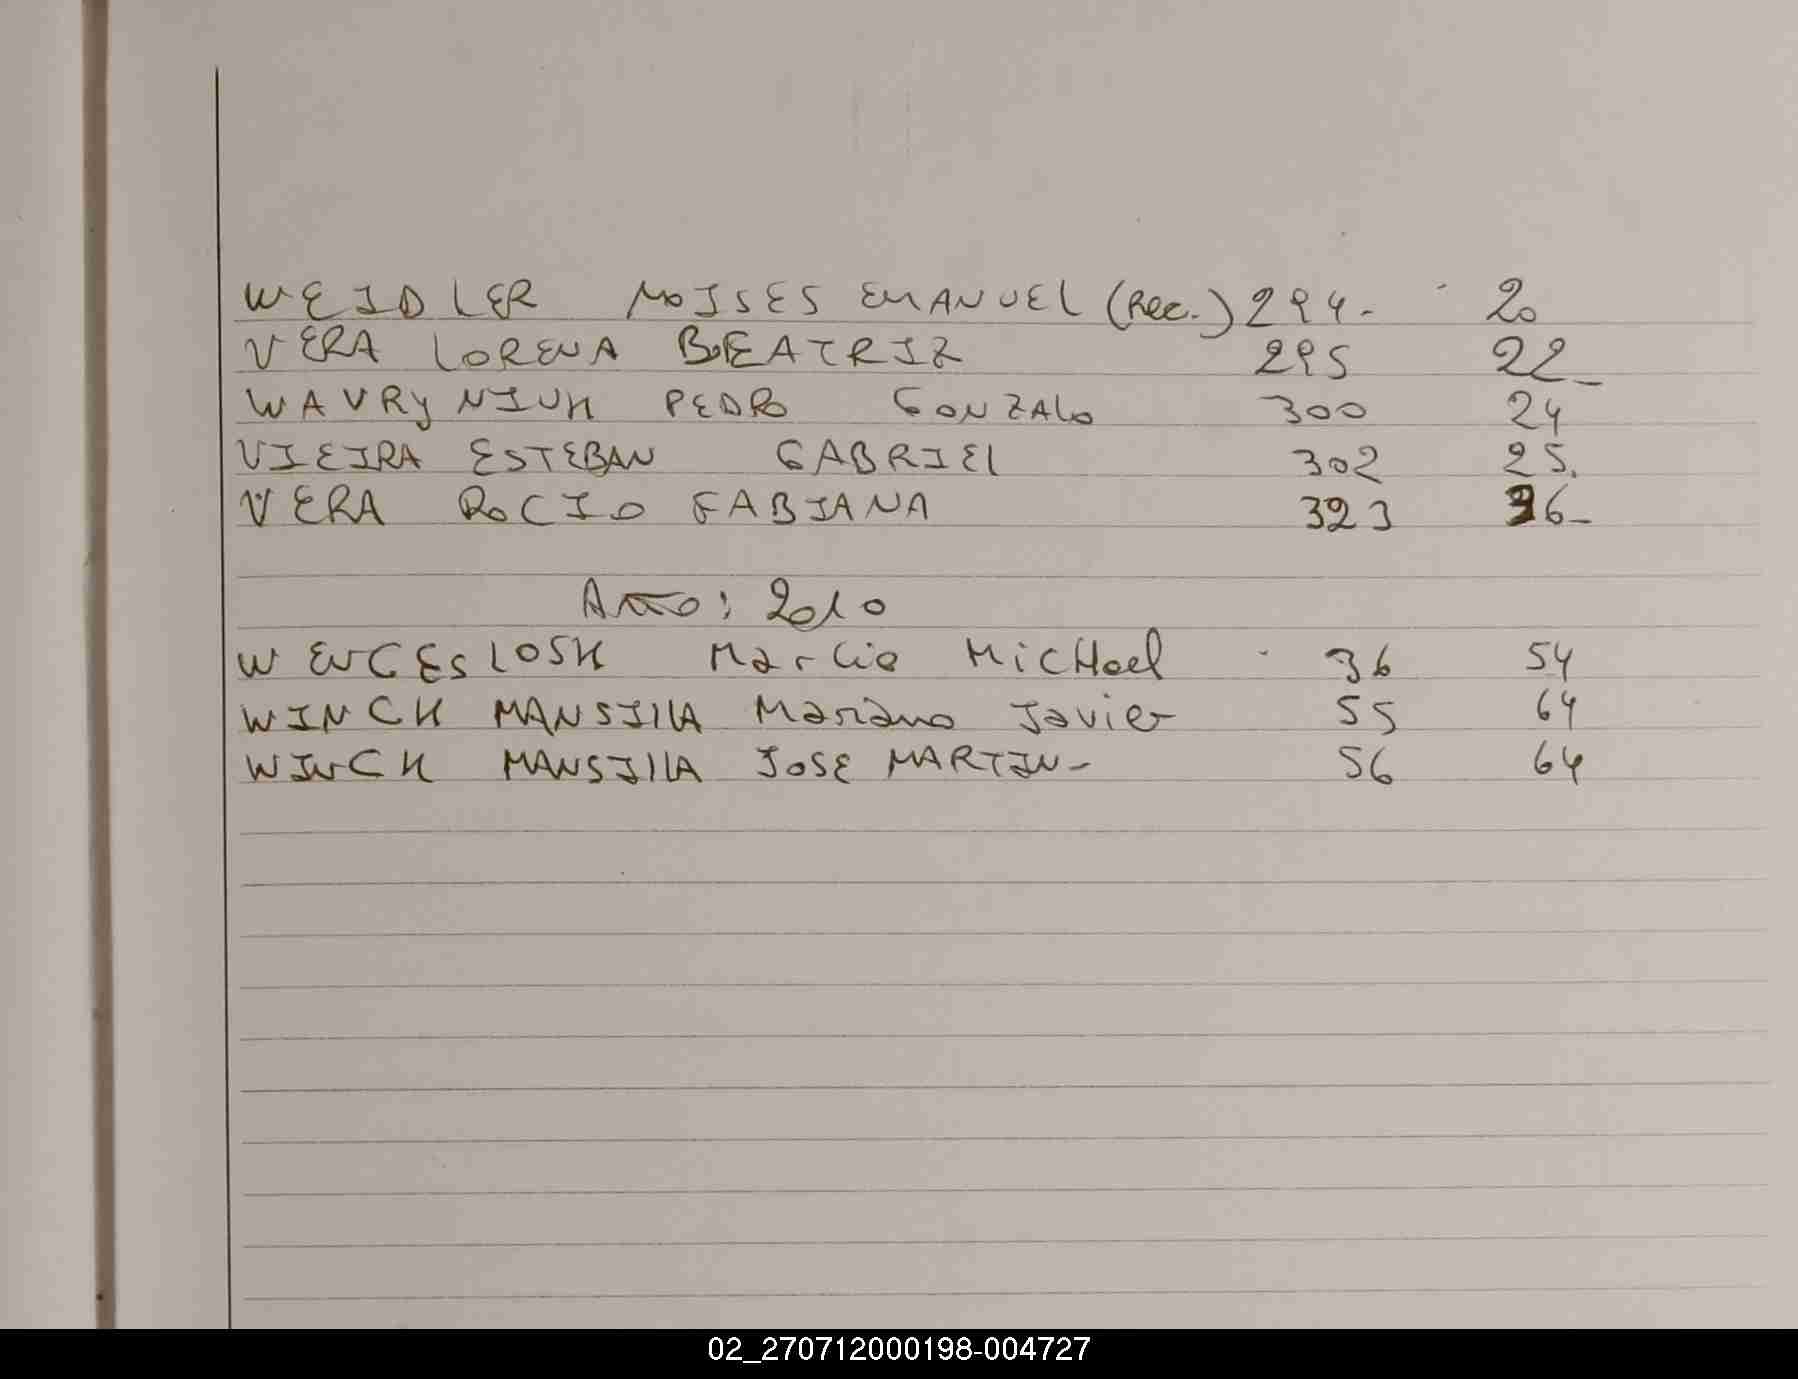 WEIDLER MOISES EMANUEL (Rec.) 294- 20
VERA LORENA BEATRIZ 295 22_
WAVRYNIUK PEDRO GONZALO 300 24
VIEIRA ESTEBAN GABRIEL 302 25.
VERA ROCIO FABIANA 323 36_
Año: 2010
WENCESLOSK Marcio MicHael 36 54
WINCK MANSILLA Mariano Javier 55 64
WINCK MANSILLA JOSE MARTIN- 56 64
02_270712000198-004727